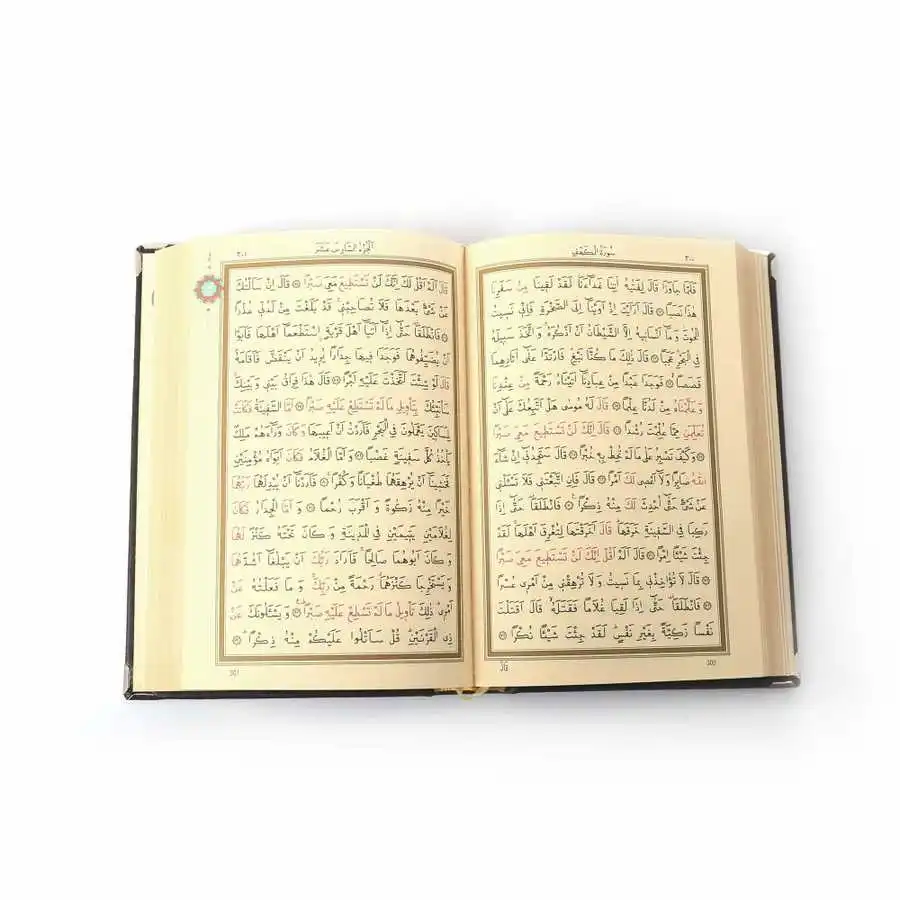 سُورَةُ الْكَهْفِ ٣٠٠
فَلَمَّا جَاوَزَا قَالَ لِفَتٰيهُ اٰتِنَا غَدَٓاءَنَاۘ لَقَدْ لَق۪ينَا مِنْ سَفَرِنَا
هٰذَا نَصَبًا ۝ قَالَ اَرَاَيْتَ اِذْ اَوَيْنَٓا اِلَى الصَّخْرَةِ فَاِنّ۪ي نَس۪يتُ
الْحُوتَۘ وَمَٓا اَنْسَان۪يهُ اِلَّا الشَّيْطَانُ اَنْ اَذْكُرَهُۚ وَاتَّخَذَ سَب۪يلَهُ
فِي الْبَحْرِ عَجَبًا ۝ قَالَ ذٰلِكَ مَا كُنَّا نَبْغِۗ فَارْتَدَّا عَلٰٓى اٰثَارِهِمَا
قَصَصًا ۝ فَوَجَدَا عَبْدًا مِنْ عِبَادِنَٓا اٰتَيْنَاهُ رَحْمَةً مِنْ عِنْدِنَا
وَعَلَّمْنَاهُ مِنْ لَدُنَّا عِلْمًا ۝ قَالَ لَهُ مُوسٰى هَلْ اَتَّبِعُكَ عَلٰٓى اَنْ
تُعَلِّمَنِ مِمَّا عُلِّمْتَ رُشْدًا ۝ قَالَ اِنَّكَ لَنْ تَسْتَط۪يعَ مَعِيَ صَبْرًا
۝ وَكَيْفَ تَصْبِرُ عَلٰى مَا لَمْ تُحِطْ بِه۪ خُبْرًا ۝ قَالَ سَتَجِدُن۪ٓي اِنْ شَٓاءَ
اللّٰهُ صَابِرًا وَلَٓا اَعْص۪ي لَكَ اَمْرًا ۝ قَالَ فَاِنِ اتَّبَعْتَن۪ي فَلَا تَسْـَٔلْن۪ي
عَنْ شَيْءٍ حَتّٰٓى اُحْدِثَ لَكَ مِنْهُ ذِكْرًا ۝ فَانْطَلَقَا۠ حَتّٰٓى اِذَا
رَكِبَا فِي السَّف۪ينَةِ خَرَقَهَاۜ قَالَ اَخَرَقْتَهَا لِتُغْرِقَ اَهْلَهَاۚ لَقَدْ
جِئْتَ شَيْـًٔا اِمْرًا ۝ قَالَ اَلَمْ اَقُلْ اِنَّكَ لَنْ تَسْتَط۪يعَ مَعِيَ صَبْرًا
۝ قَالَ لَا تُؤَاخِذْن۪ي بِمَا نَس۪يتُ وَلَا تُرْهِقْن۪ي مِنْ اَمْر۪ي عُسْرًا
۝ فَانْطَلَقَا۠ حَتّٰٓى اِذَا لَقِيَا غُلَامًا فَقَتَلَهُۙ قَالَ اَقَتَلْتَ
نَفْسًا زَكِيَّةً بِغَيْرِ نَفْسٍۜ لَقَدْ جِئْتَ شَيْـًٔا نُكْرًا ۝
اَلْجُزْءُ السَّادِسَ عَشَرَ ٣٠١
قَالَ اَلَمْ اَقُلْ لَكَ اِنَّكَ لَنْ تَسْتَط۪يعَ مَعِيَ صَبْرًا ۝ قَالَ اِنْ سَاَلْتُكَ
عَنْ شَيْءٍ بَعْدَهَا فَلَا تُصَاحِبْن۪يۚ قَدْ بَلَغْتَ مِنْ لَدُنّ۪ي عُذْرًا
۝ فَانْطَلَقَا۠ حَتّٰٓى اِذَٓا اَتَيَٓا اَهْلَ قَرْيَةٍۨ اسْتَطْعَمَٓا اَهْلَهَا فَاَبَوْا
اَنْ يُضَيِّفُوهُمَا فَوَجَدَا ف۪يهَا جِدَارًا يُر۪يدُ اَنْ يَنْقَضَّ فَاَقَامَهُۜ
قَالَ لَوْ شِئْتَ لَتَّخَذْتَ عَلَيْهِ اَجْرًا ۝ قَالَ هٰذَا فِرَاقُ بَيْن۪ي وَبَيْنِكَۚ
سَاُنَبِّئُكَ بِتَأْو۪يلِ مَا لَمْ تَسْتَطِعْ عَلَيْهِ صَبْرًا ۝ اَمَّا السَّف۪ينَةُ فَكَانَتْ
لِمَسَاك۪ينَ يَعْمَلُونَ فِي الْبَحْرِ فَاَرَدْتُ اَنْ اَع۪يبَهَا وَكَانَ وَرَٓاءَهُمْ مَلِكٌ
يَأْخُذُ كُلَّ سَف۪ينَةٍ غَصْبًا ۝ وَاَمَّا الْغُلَامُ فَكَانَ اَبَوَاهُ مُؤْمِنَيْنِ
فَخَش۪ينَٓا اَنْ يُرْهِقَهُمَا طُغْيَانًا وَكُفْرًا ۝ فَاَرَدْنَٓا اَنْ يُبْدِلَهُمَا رَبُّهُمَا
خَيْرًا مِنْهُ زَكٰوةً وَاَقْرَبَ رُحْمًا ۝ وَاَمَّا الْجِدَارُ فَكَانَ
لِغُلَامَيْنِ يَت۪يمَيْنِ فِي الْمَد۪ينَةِ وَكَانَ تَحْتَهُ كَنْزٌ لَهُمَا
وَكَانَ اَبُوهُمَا صَالِحًاۚ فَاَرَادَ رَبُّكَ اَنْ يَبْلُغَٓا اَشُدَّهُمَا
وَيَسْتَخْرِجَا كَنْزَهُمَاۗ رَحْمَةً مِنْ رَبِّكَۚ وَمَا فَعَلْتُهُ عَنْ
اَمْر۪يۜ ذٰلِكَ تَأْو۪يلُ مَا لَمْ تَسْطِعْ عَلَيْهِ صَبْرًا ۝ وَيَسْـَٔلُونَكَ عَنْ
ذِي الْقَرْنَيْنِۜ قُلْ سَاَتْلُوا عَلَيْكُمْ مِنْهُ ذِكْرًا ۝
301
3G